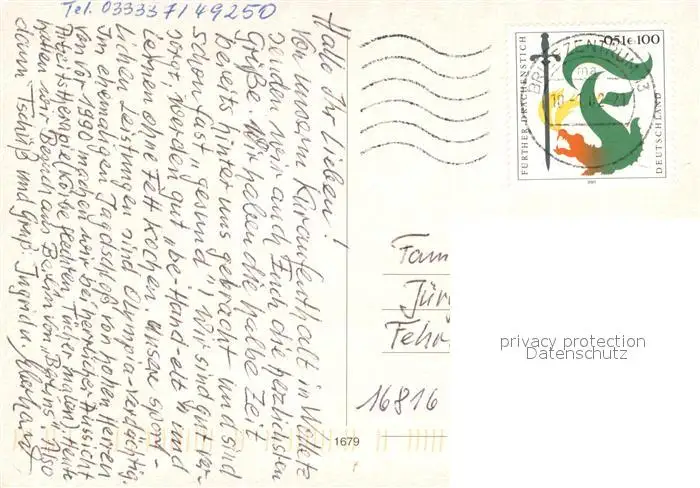 Tel. 033337/49250
Hallo Ihr Lieben!
Von unsrem Kuraufenthalt in Wolletz
senden wir auch Euch die herzlichsten
Grüße. Wir haben die halbe Zeit
bereits hinter uns gebracht und sind
schon fast "gesund"! Wir sind gut ver-
sorgt, werden gut "be-Hand-elt" und
lernen ohne Fett kochen. Unsere sport-
lichen Leistungen sind Olympia-verdächtig.
Im ehemaligen Jagdschloß von hohen Herren
von vor 1990 machen wir bei herrlicher Aussicht
Arbeitstherapie (Körbe flechten, Tücher malen). Heute
hatten wir Besuch aus Berlin von Berlins. Also
dann Tschüß und Gruß Ingrid u.
FURTHER DRACHENSTICH
0,51 € 100
DEUTSCHLAND
2001
BRIEFZENTRUM
Fam
Jür
Fehr
16816
1679
privacy protection
Datenschutz